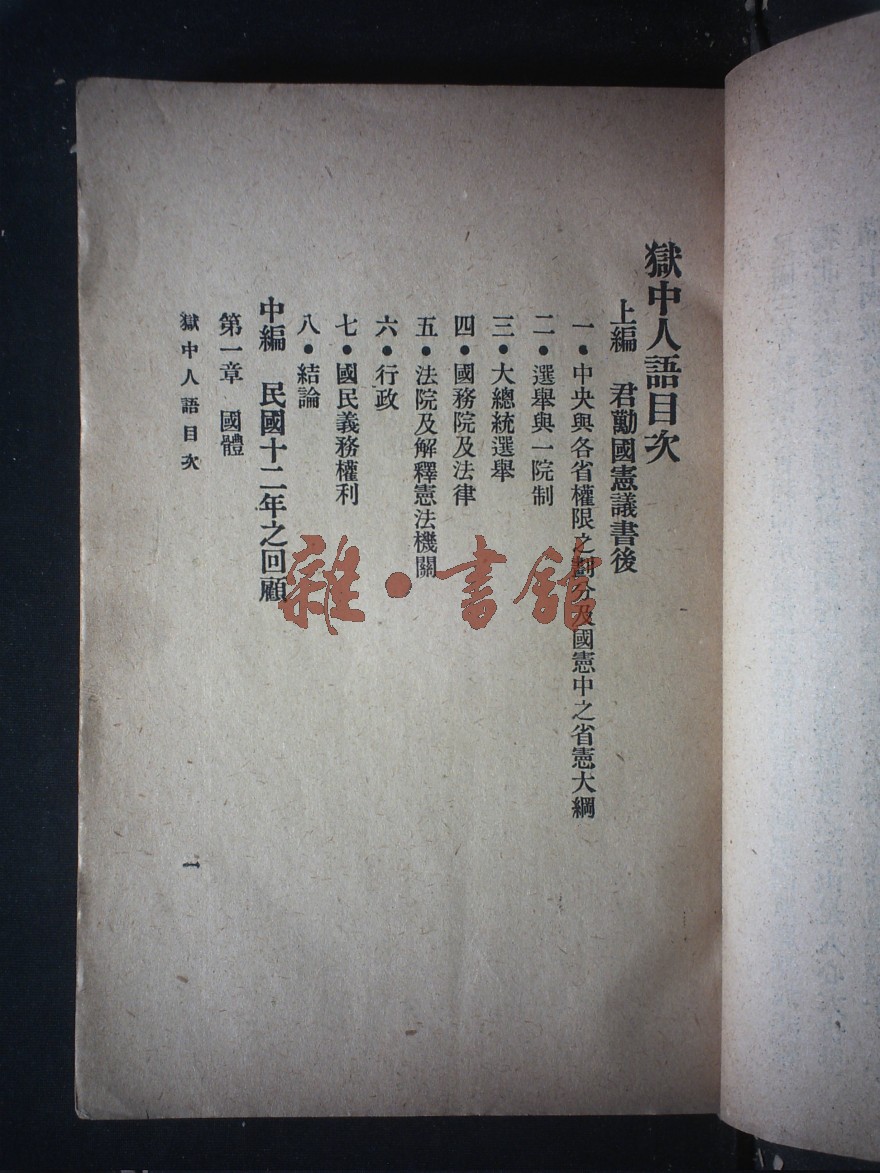 獄中人語目次
上編　君勱國憲議書後
一・中央與各省權限之劃分及國憲中之省憲大綱
二・選舉與一院制
三・大總統選舉
四・國務院及法律
五・法院及解釋憲法機關
六・行政
七・國民義務權利
八・結論
中編　民國十二年之回顧
第一章　國體
獄中人語目次
一
雜・書館